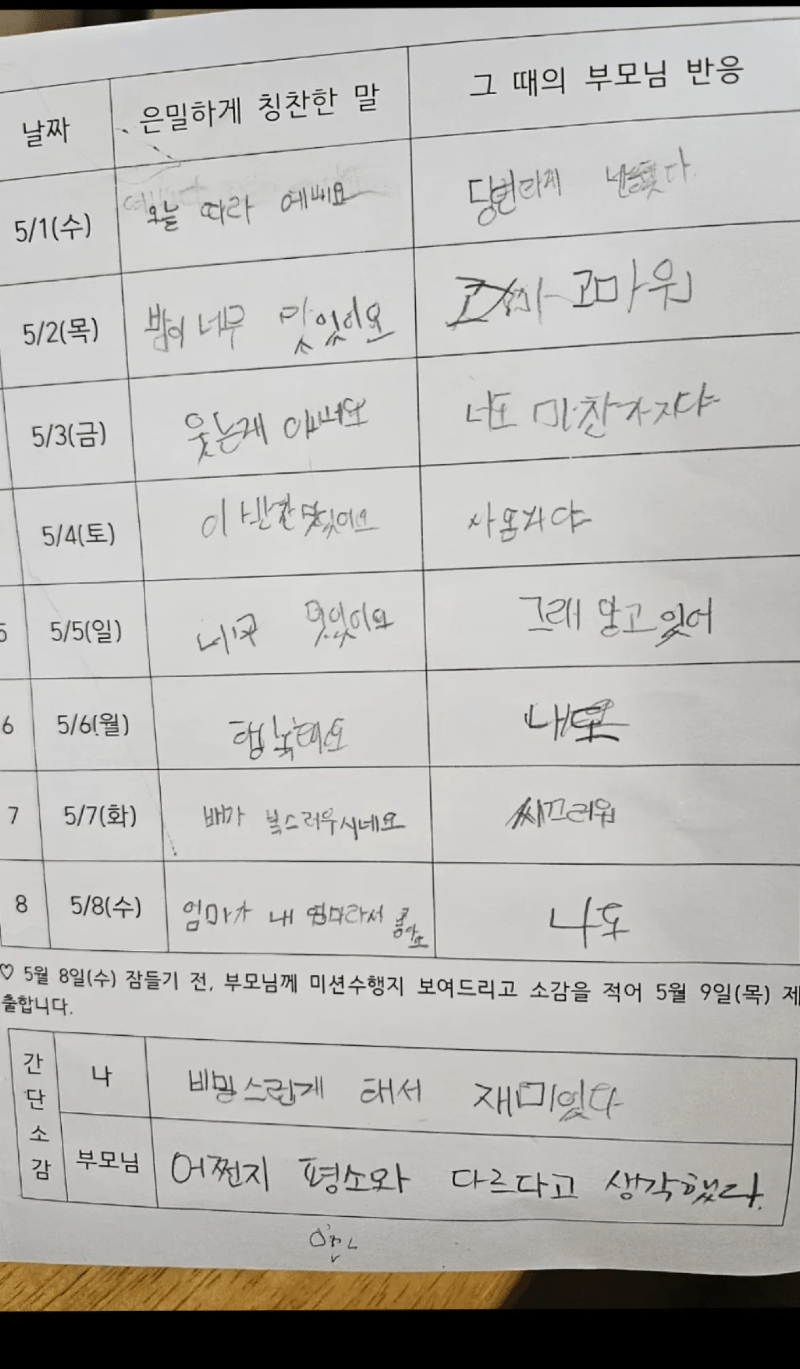 날짜 은밀하게 칭찬한 말 그 때의 부모님 반응
5/1(수) 오늘 따라 예뻐요
5/2(목) 밥이 너무 맛있어요 고마워
5/3(금) 웃는게 너도 마찬가지야
5/4(토) 이 반찬 맛있어요
5 5/5(일) 멋있어요 그래 알고 있어
6 5/6(월) 행복해요 나도
7 5/7(화) 배가 복스러우시네요 씨끄러워
8 5/8(수) 엄마가 내 엄마라서 좋아요 나도
♡ 5월 8일(수) 잠들기 전, 부모님께 미션수행지 보여드리고 소감을 적어 5월 9일(목) 제
출합니다.
간단소감
나 비밀스럽게 해서 재미있다
부모님 어쩐지 평소와 다르다고 생각했다.